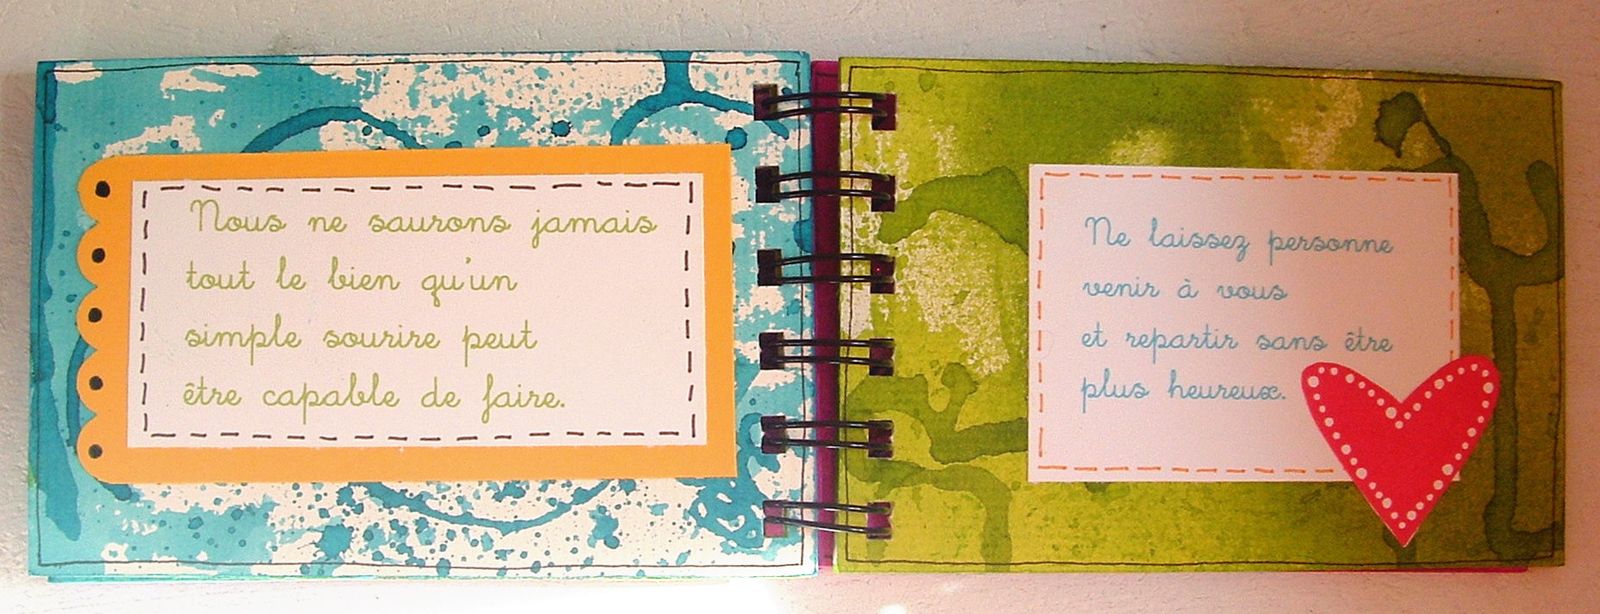 Nous ne saurons jamais
tout le bien qu'un
simple sourire peut
être capable de faire.
Ne laissez personne
venir à vous
et repartir sans être
plus heureux.